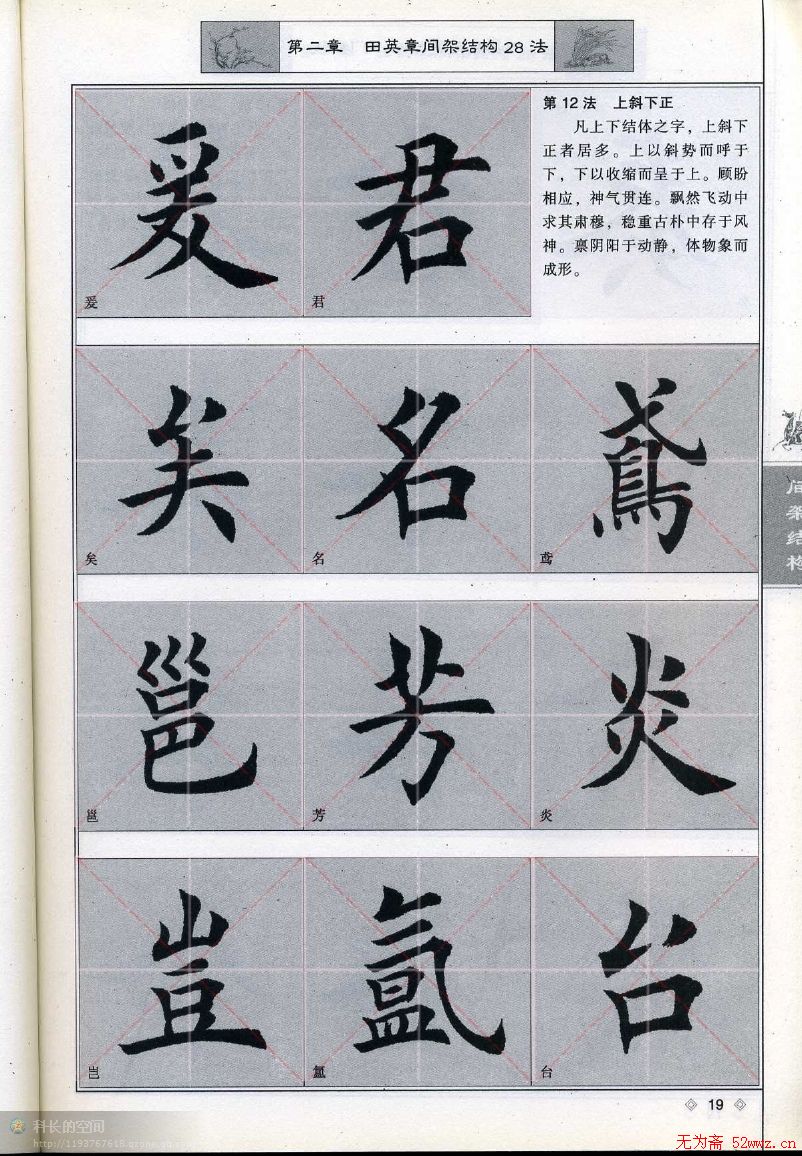 第二章 田英章间架结构28法
第12法 上斜下正
凡上下结体之字，上斜下
正者居多。上以斜势而呼于
下，下以收缩而呈于上。顾盼
相应，神气贯连。飘然飞动中
求其肃穆，稳重古朴中存于风
神。禀阴阳于动静，体物象而
成形。
爰 君
爰 君
矣 名 鳶
矣 名 鸢
邕 芳 炎
邕 芳 炎
豈 氲 台
岂 氲 台
结构
19
科长的空间
http://1193767618.qzone.qq.com
无为斋 52wwz.cn